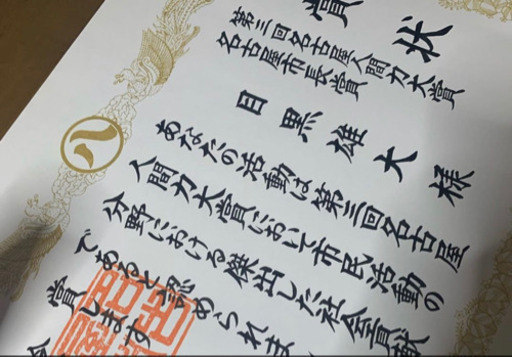 賞状
第三回名古屋人間力大賞
名古屋市長賞
目黒雄大様
あなたの活動は第三回名古屋
人間力大賞において市民活動の
分野における傑出した社会貢献
であると認められま
賞します